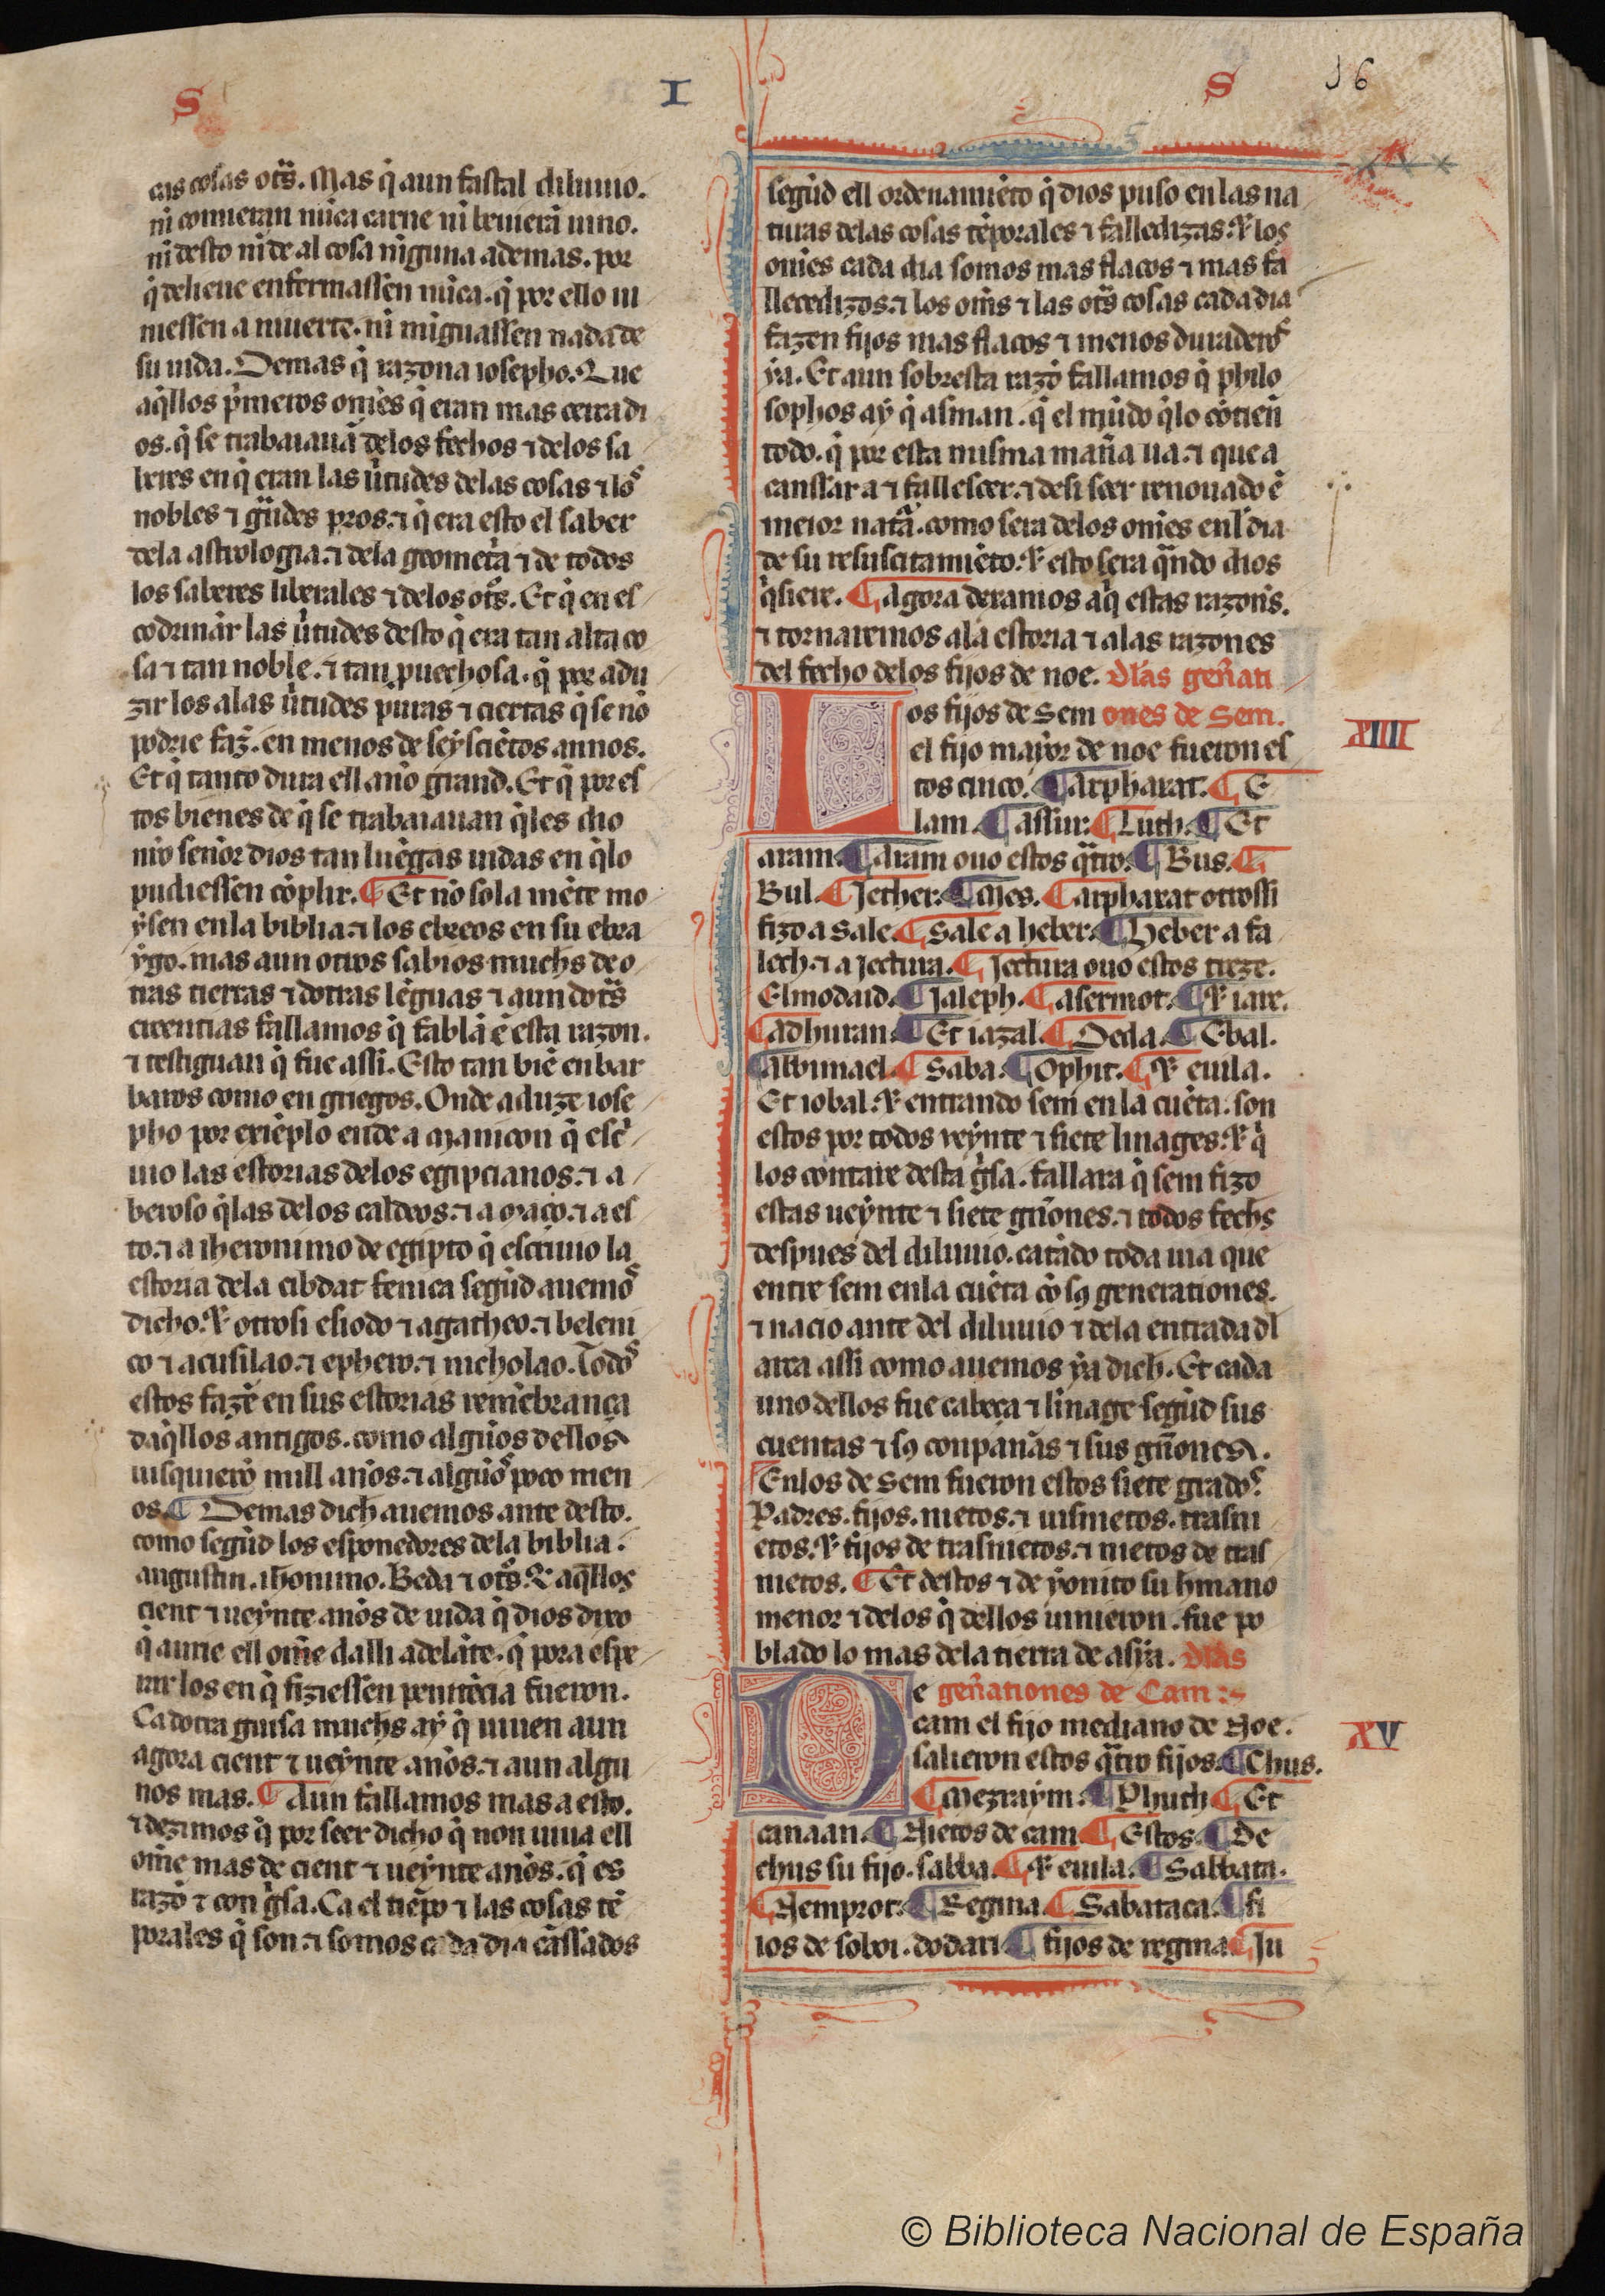 S I S 16
cas cosas otᵃs. Mas q̇ aun fastal diluuio.
ni comieran nũca carne ni beuierã uino.
ni desto ni de al cosa niguna ademas. por
q̇ deliene enfermassen nũca. q̇ por ello ui
niessen a muerte. ni minguassen nada de
su uida. Demas q̇ razona iosepho. Que
aq̇llos pͥmeros omẽs q̇ eran mas cerca di
os. q̇ se trabaiauã delos fechos ⁊ delos sa
beres en q̇ eran las uͥtudes delas cosas ⁊ loˢ
nobles ⁊ gᵃndes pros. ⁊ q̇ era esto el saber
dela astrologia. ⁊ dela geometͥa ⁊ de todos
los saberes liberales ⁊ delos otͦs. Et q̇ en es
codrinar las uͥtudes desto q̇ era tan alta co
sa ⁊ tan noble. ⁊ tan puechosa. q̇ por adu
zir los alas uͥtudes puras ⁊ ciertas q̇ se nõ
podrie faz̃. en menos de seyscietos annos.
Et q̇ tanto dura ell anõ grand. Et q̇ por es
tos bienes de q̇ se trabaiauan q̇les dio
nr̃o señor dios tan luẽgas uidas en q̇ lo
pudiessen cõplir. ¶ Et nõ sola mẽte mo
ysen en la biblia. ⁊ los ebreos en su ebra
ygo. mas aun otros sabios muchs de o
tras tierras ⁊ dotras lẽguas ⁊ aun dotᵃs
creentias fallamos q̇ fablã ẽ esta razon.
⁊ testiguan q̇ fue assi. Esto tan biẽ en bar
baros como en griegos. Onde aduze iose
pho por exiẽplo ende a Manicon q̇ escͥ
uio las estorias delos egipcianos. ⁊ a
beroso q̇ las delos caldeos. ⁊ a Maco. ⁊ a es
to. ⁊ a iheronimo de egipto q̇ escriuio la
estoria dela cibdat fenica segũd auemoˢ
dicho. ⁊ otrosi esiodo ⁊ agatheo. ⁊ beleni
co ⁊ acusilao. ⁊ ephero. ⁊ nicholao. Todoˢ
estos fazẽ en sus estorias remẽbrança
daq̇llos antigos. como algũos dellos
uisquierõ mill anõs. ⁊ algũoˢ poco men
os. ¶ Demas dich auemos ante desto.
como segũd los esponedores dela biblia.
augustin. ih̃onimo. Beda ⁊ otͦs. Q aq̃llos
cient ⁊ ueynte anõs de uida q̇ dios dixo
q̇ aurie ell om̃e dalli adelãte. q̇ pora espe
rar los en q̇ fiziessen penitẽcia fueron.
Ca dotra guisa muchs ay q̇ uiuen aun
agora cient ⁊ ueynte anõs. ⁊ aun algu
nos mas. ¶ Aun fallamos mas a esto.
⁊ dezimos q̇ por seer dicho q̇ non uiua ell
om̃e mas de cient ⁊ ueynte anõs. q̇ es
razõ ⁊ con gͥsa. Ca el tiẽpo ⁊ las cosas tẽ
porales q̇ son. ⁊ somos cada dia cãssados
segũd ell ordenamiẽto q̇ dios puso en las na
turas delas cosas tẽporales ⁊ falledizas. ⁊ los
omes cada dia somos mas flacos ⁊ mas fa
llecedizos. ⁊ los om̃s ⁊ las otᵃs cosas cada dia
fazen fijos mas flacos ⁊ menos duraderoˢ
ya. Et aun sobresta razõ fallamos q̇ philo
sophos ay q̇ asman. q̇ el mũdo q̇ lo cõtien
todo. q̇ por esta misma mañ̃a ua. ⁊ que a
canssar a ⁊ fallescer. ⁊ desi seer renouado ẽ
meior natᵃ. como sera delos omes enl dia
de su resuscitamiẽto. ⁊ esto sera qᵃndo dios
q̇siere. ¶ Agora dexamos aq̇ estas razons.
⁊ tornaremos ala estoria ⁊ alas razones
del fecho delos fijos de noe. Dlas geñati
Los fijos de Sem ones de Sem.
el fijo mayor de noe fueron es
XIIII
tos cinco. ¶ Arpharat. ¶ E
lam. ¶ assur. ¶ Luth. ¶ Et
aram. ¶ Aram ouo estos qᵃtro. ¶ Bus. ¶
Bul. ¶ Jether. ¶ Mes. ¶ Arpharat otrossi
fizo a Sale. ¶ Sale a heber. ¶ Heber a fa
lech. ⁊ a Jectura. ¶ Jectura ouo estos treze.
Elmodaid. ¶ Jaleph. ¶ Asermot. ¶ ⁊ iare.
¶ Adhuran. ¶ Et iazal. ¶ Decla. ¶ Ebal.
¶ Abimael. ¶ Saba. ¶ Ophir. ¶ ⁊ euila.
Et iobal. ⁊ entrando sem en la cuẽta. son
estos por todos veynte ⁊ siete linages. ⁊ q̇
los contare desta gͥsa. fallara q̇ sem fizo
estas ueynte ⁊ siete gñones. ⁊ todos fechs
despues del diluuio. catãdo toda uia que
entre sem en la cuẽta cõ sꝰ generationes.
⁊ nacio ante del diluuio ⁊ dela entrada dl
arca assi como auemos ya dich. Et cada
uno dellos fue cabeça ⁊ linage segũd sus
cuentas ⁊ sꝰ conpanãs ⁊ sus gñones.
En los de Sem fueron estos siete gradoˢ.
Padres. fijos. nietos. ⁊ uisnietos. trasni
etos. ⁊ fijos de trasnietos. ⁊ nietos de tras
nietos. ¶ Et destos ⁊ de yonito su hmano
menor ⁊ delos q̇ dellos uinieron. fue po
blado lo mas dela tierra de asia. Dlas
De geñationes de Cam
cam el fijo mediano de Noe.
XV
salieron estos qᵃtro fijos. ¶ Chus.
¶ Mezraym. ¶ Phuth. ¶ Et
canaan. ¶ Nietos de cam. ¶ Estos. ¶ De
chus su fijo. sabba. ¶ ⁊ euila. ¶ Sabbata.
¶ Nemprot. ¶ Regma. ¶ Sabataca. ¶ fi
ios de soboi. dodan. ¶ fijos de regma. ¶ Ju
© Biblioteca Nacional de España